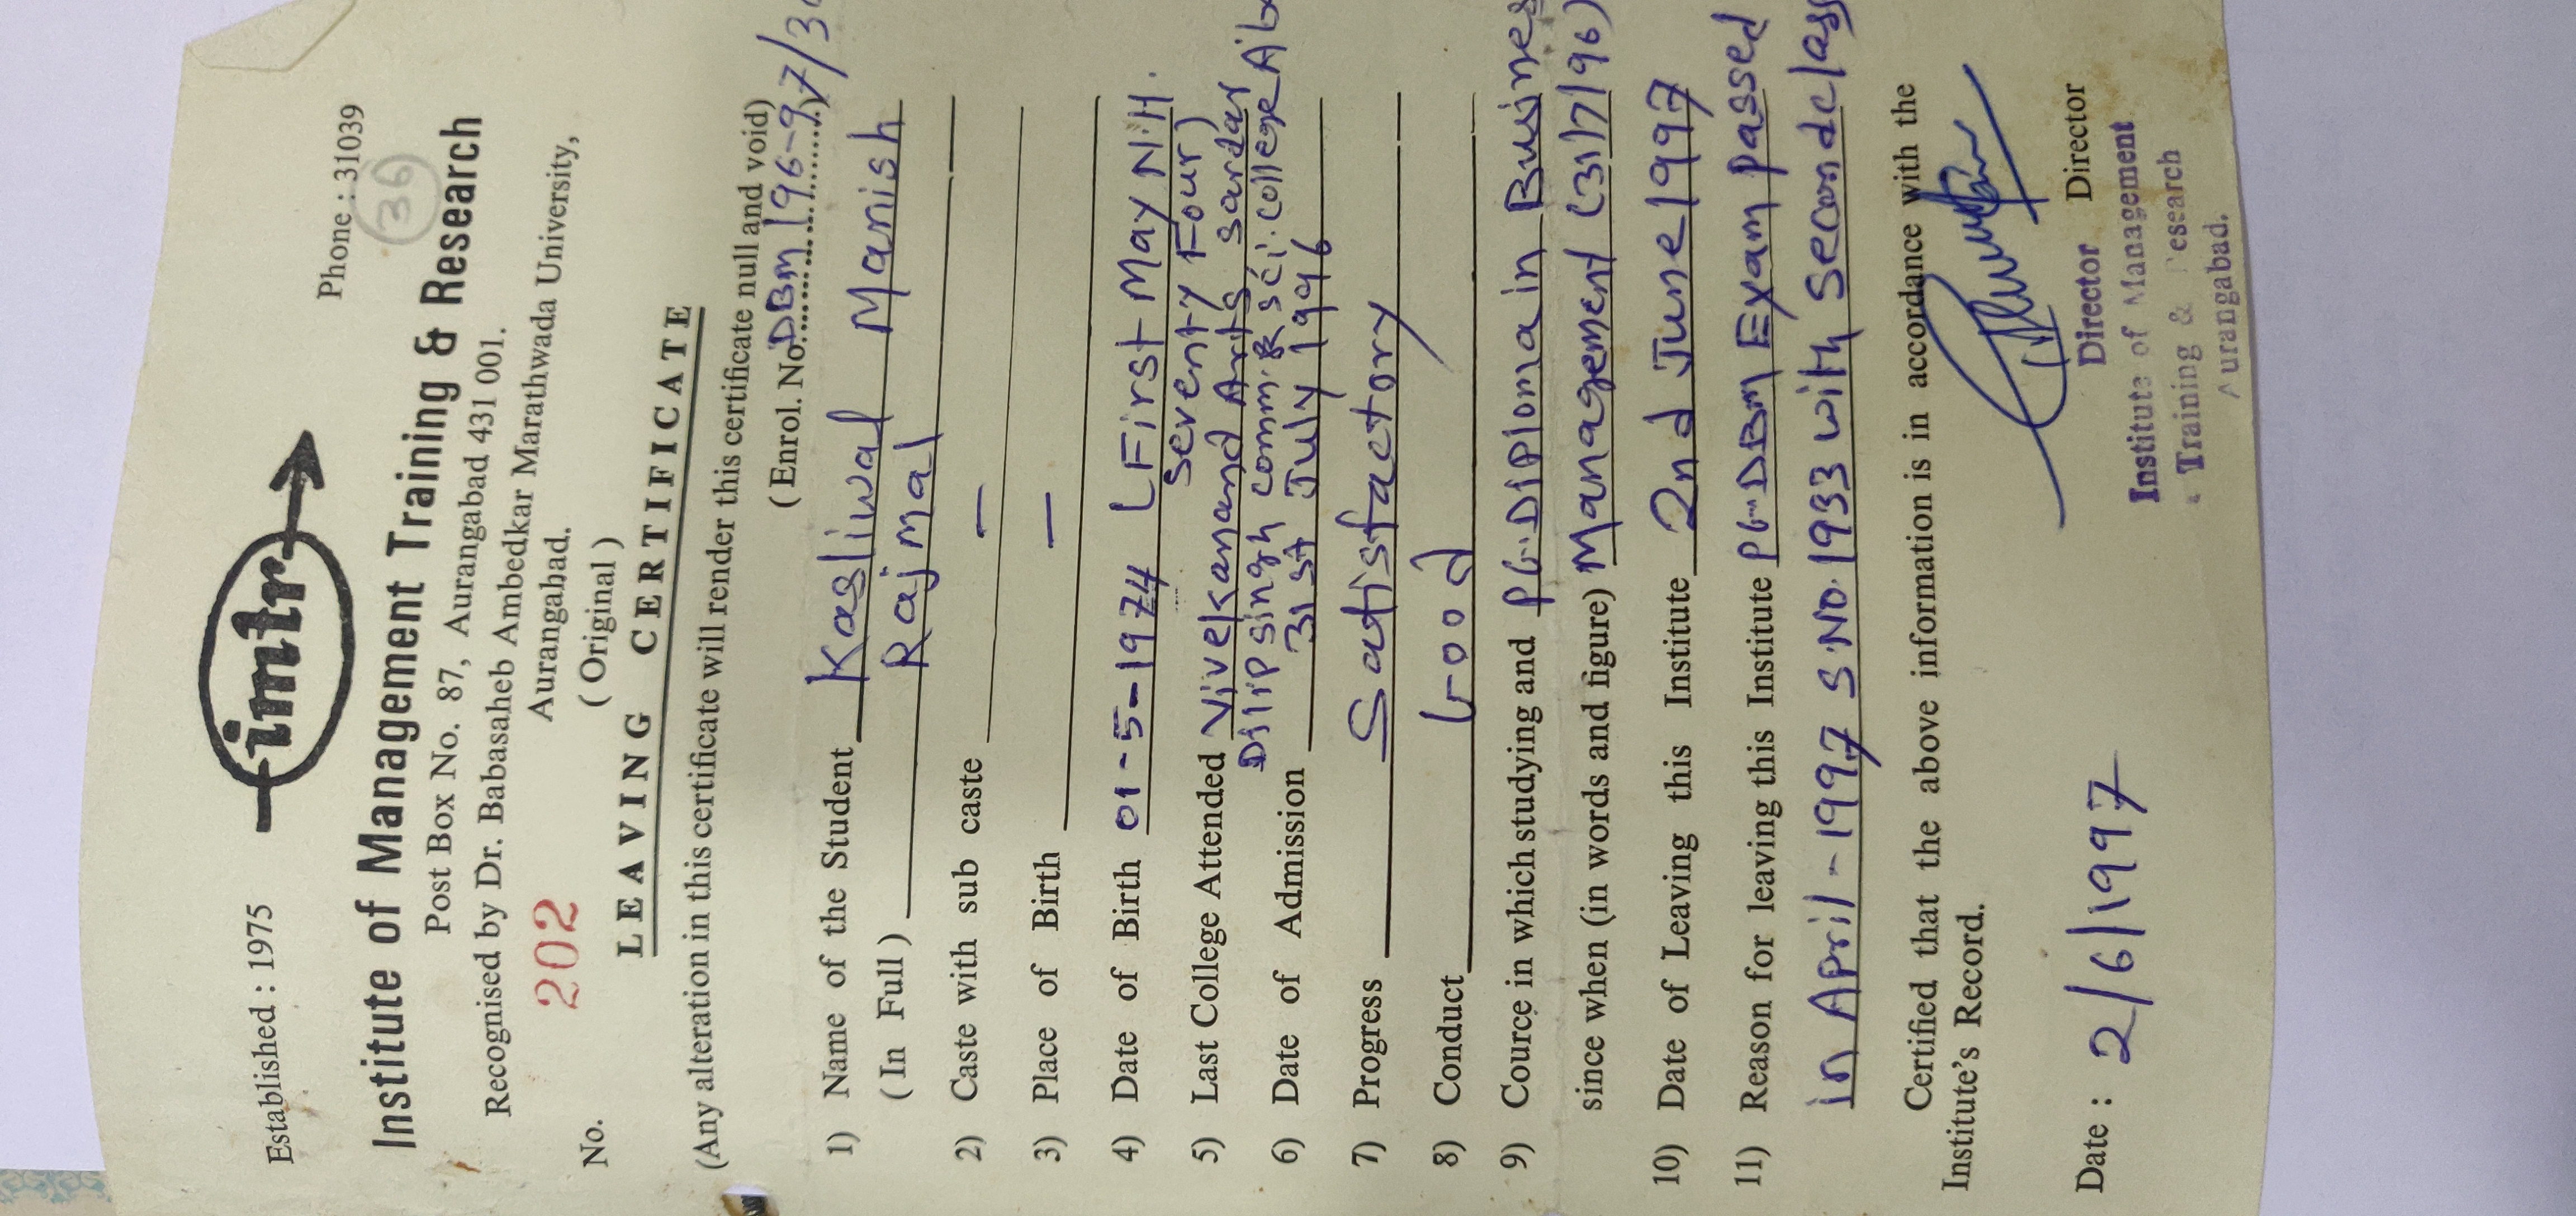 Established : 1975
Phone : 31039
imtr
36
Institute of Management Training & Research
Post Box No. 87, Aurangabad 431 001.
Recognised by Dr. Babasaheb Ambedkar Marathwada University,
Aurangabad.
No. 202
( Original )
LEAVING CERTIFICATE
(Any alteration in this certificate will render this certificate null and void)
( Enrol. No. DBM/96-97/3
1) Name of the Student Kasliwal Manish
( In Full ) Rajmal
2) Caste with sub caste —
3) Place of Birth —
4) Date of Birth 01-5-1974 (First May N.H.
Seventy Four)
5) Last College Attended Vivekanand Arts Sardar
Dilipsingh Comm. & Sci. College A'b
6) Date of Admission 31st July 1996
7) Progress Satisfactory
8) Conduct Good
9) Cource in which studying and PG. Diploma in Busines
since when (in words and figure) Management (31/7/96)
10) Date of Leaving this Institute 2nd June 1997
11) Reason for leaving this Institute PG-DBM Exam passed
in April-1997 S.No. 1933 with second class
Certified that the above information is in accordance with the
Institute's Record.
Date : 2/6/1997
Director
Director
Institute of Management
Training & Research
Aurangabad.